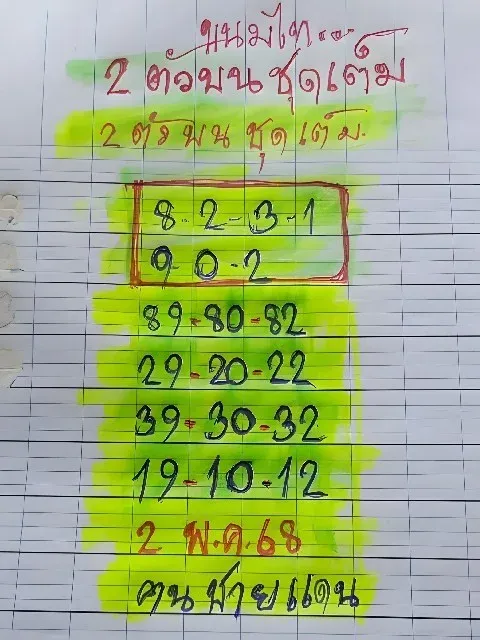 ขนมไท...
2 ตัวบนชุดเต็ม
2 ตัวบนชุดเต็ม.
8-2-3-1
9-0-2
89-80-82
29-20-22
39-30-32
19-10-12
2 พ.ค.68
ฅนชายแดน